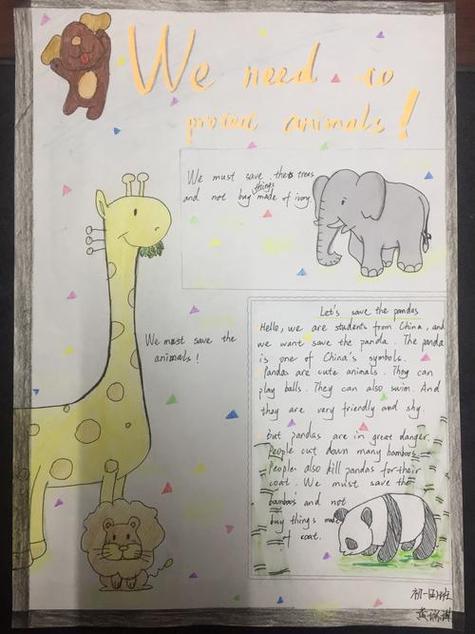 We need to
animals!
We must save the trees
things
and not buy made of ivory.
We must save the
animals!
Let's save the pandas
Hello, we are students from China, and
we want save the panda. The panda
is one of China's symbols.
Pandas are cute animals. They can
play balls. They can also swim. And
they are very friendly and shy
but pandas are in great danger.
People cut down many bamboos.
People also kill pandas for their
coat. We must save the
bamboos and not
buy things made
of coat.
初一